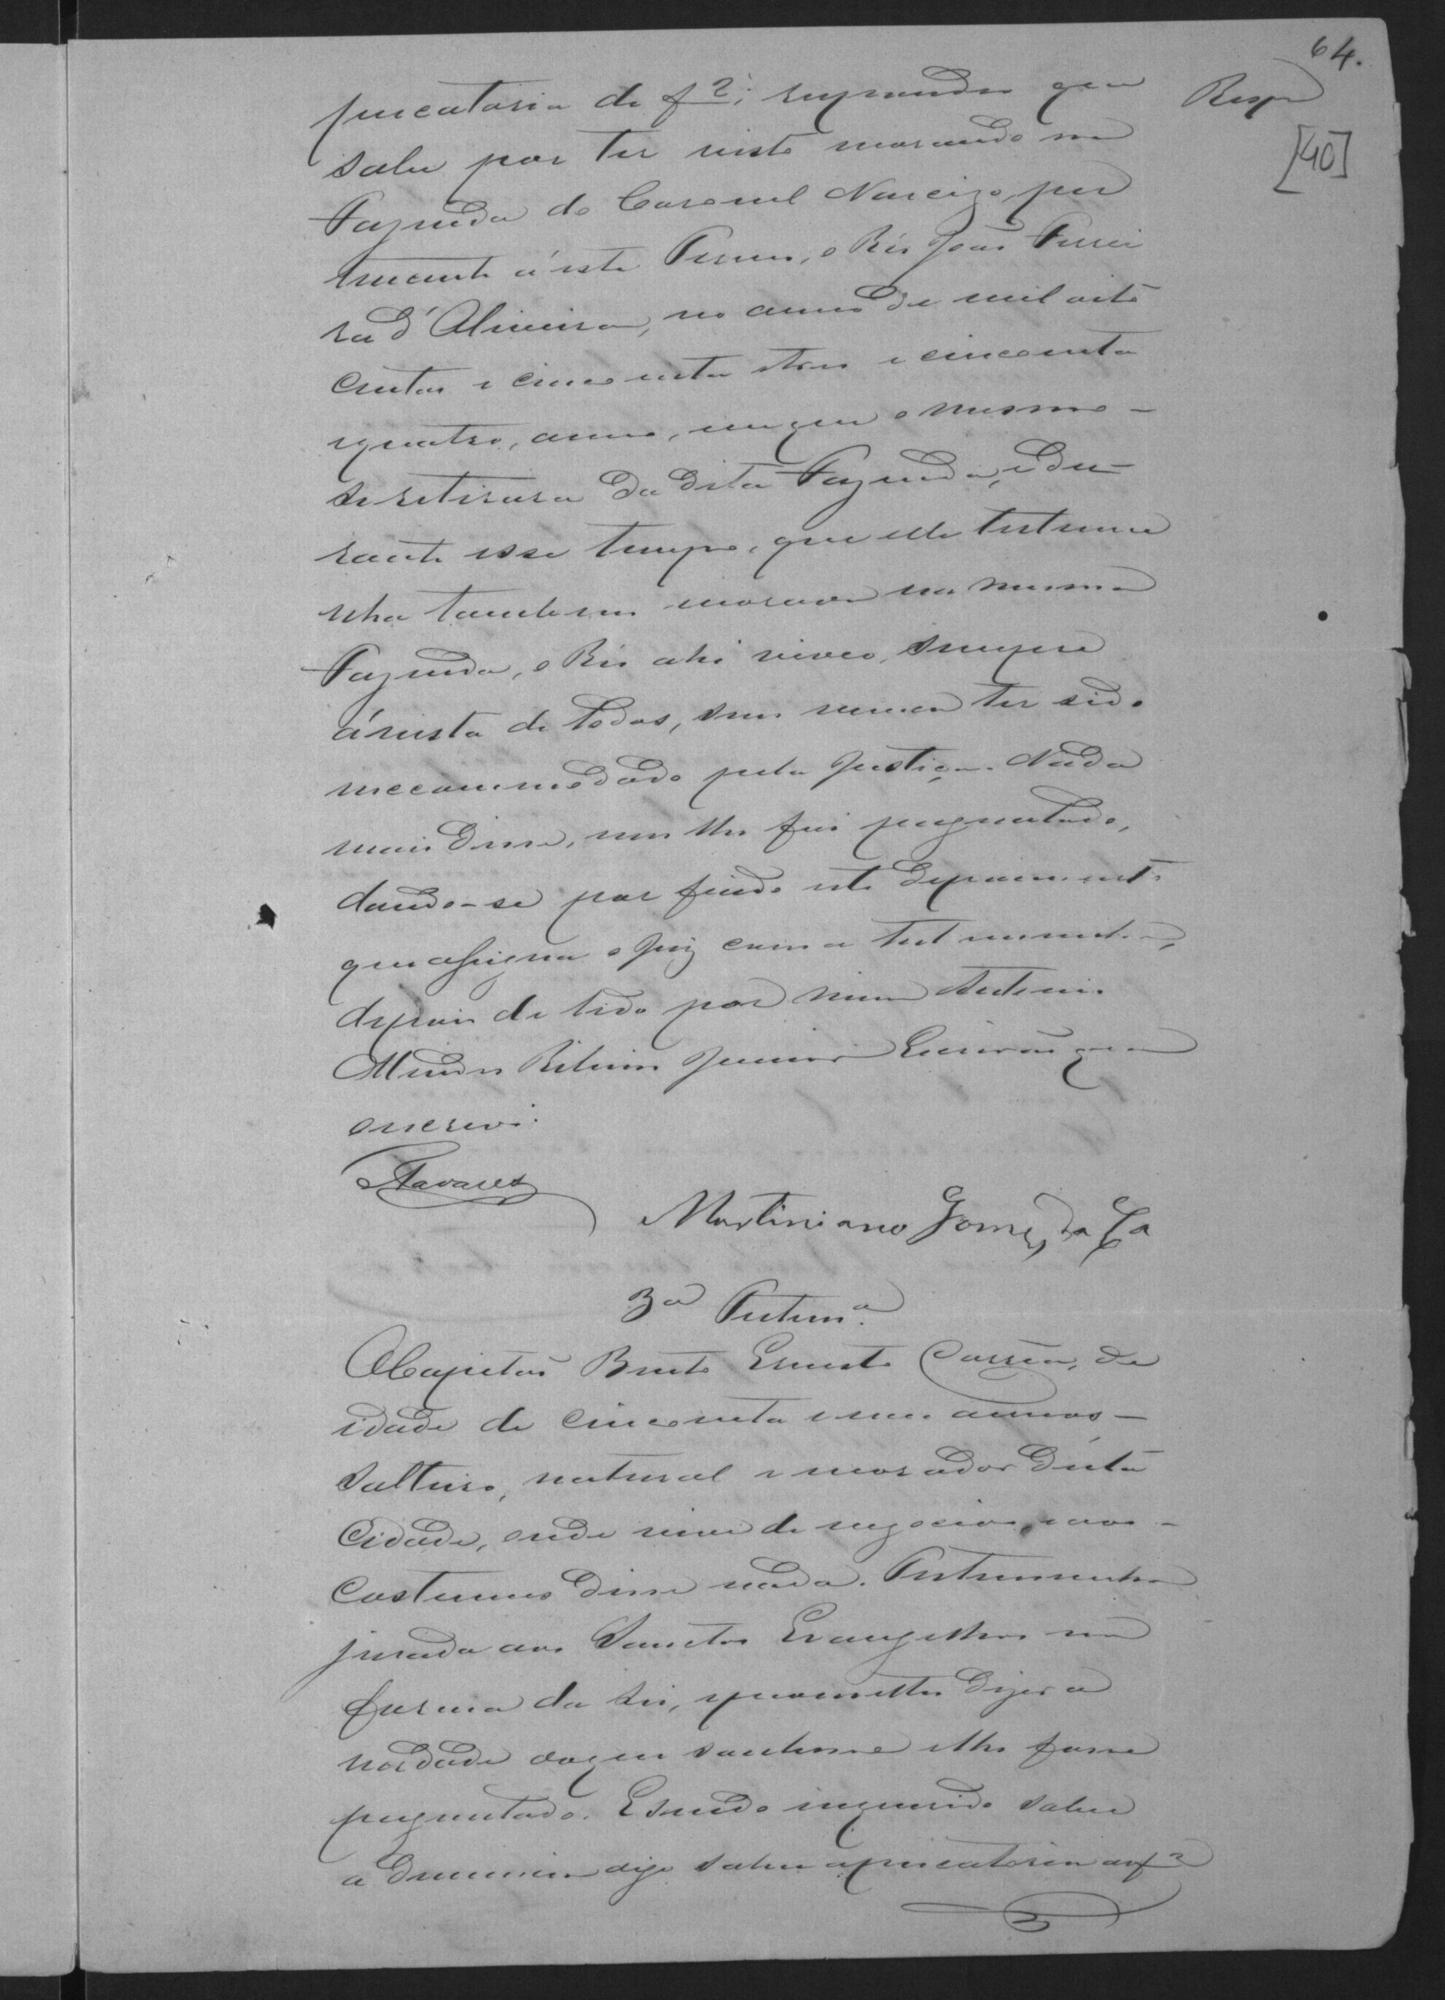 64.
precatoria de f 2; respondeo que
Resp
[40]
sabe por ter visto morando na
Fazenda do Coronel Narcizo, per
tencente á este Termo, o Réo João Ferrei
ra d'Oliveira, no anno de mil oito
centos e cincoenta e tres e cincoenta
e quatro, anno, em que o mesmo
se retirara da dita Fazenda, e du-
rante esse tempo, que elle testemu
nha tambem morava na mesma
Fazenda, o Réo ahi viveo, sempre
á vista de todos, sem nunca ter sido
incommodado pela Justiça. Nada
mais disse, nem lhe foi perguntado,
dando-se por findo este depoimento
que assigna o Juiz com a testemunha,
depois de lido por mim Antonio
Mendes Ribeiro Junior Escrivão que
o escrevi.
Tavares
Martiniano Gomes da Cª
3a Testemª.
O Capitão Bento Ernesto Corrêa, de
idade de cincoenta e um annos
solteiro, natural e morador desta
Cidade, onde vive de negocios, e aos
costumes disse nada. Testemunha
jurada aos Santos Evangelhos na
forma da Lei, e prometteu dizer a
verdade do que soubesse e lhe fosse
perguntado. E sendo inquirido sobre
a denuncia digo sobre a precatoria af 2